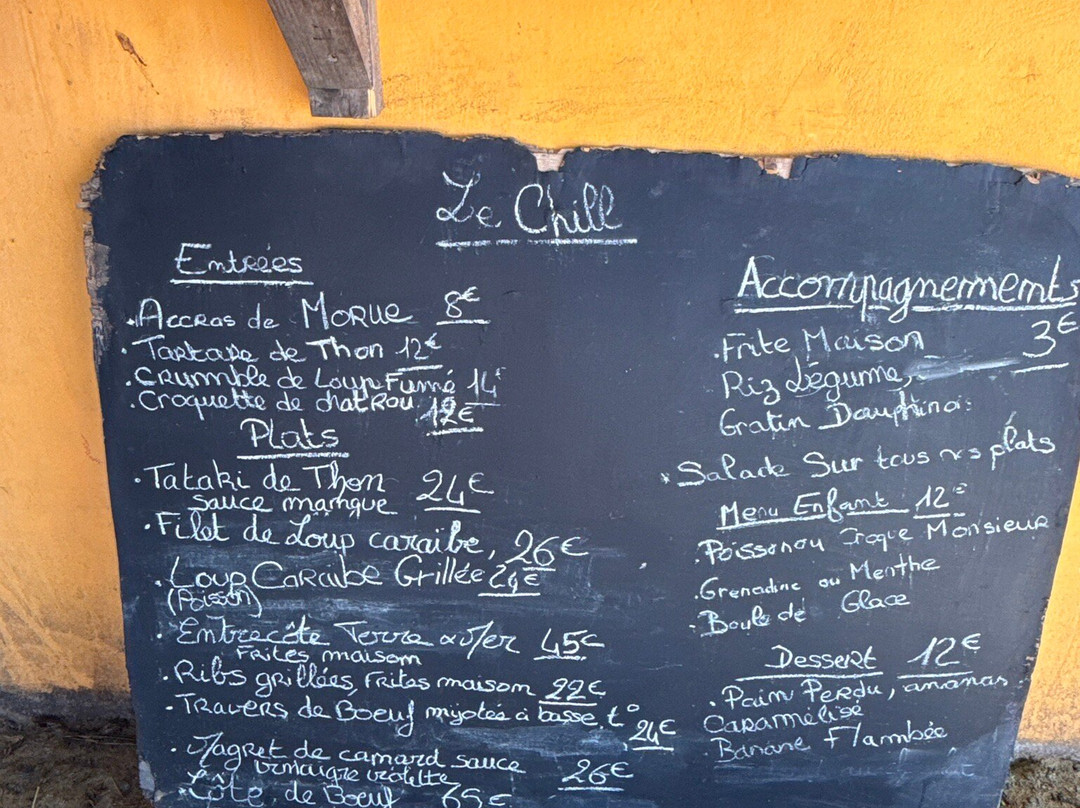 Le Chill
Entrées
• Accras de Morue 8€
• Tartare de Thon 12€
• Crumble de Loup Fumé 14€
• Croquette de chatrou 12€
Plats
• Tataki de Thon 24€
sauce mangue
• Filet de Loup caraibe, 26€
• Loup Caraibe Grillée 24€
(Poisson)
• Entrecôte Terre & Mer 45€
Frites maison
• Ribs grillées, Frites maison 22€
• Travers de Boeuf mijotés à basse t° 24€
• Magret de canard sauce
vinaigre 26€
• Côte de Boeuf 65€
Accompagnements
• Frite Maison 3€
Riz Légume,
Gratin Dauphinois
* Salade Sur tous nos plats
Menu Enfant 12€
• Poisson ou Croque Monsieur
• Grenadine ou Menthe
• Boule de Glace
Dessert 12€
• Pain Perdu, ananas
Caramélisé
Banane Flambée